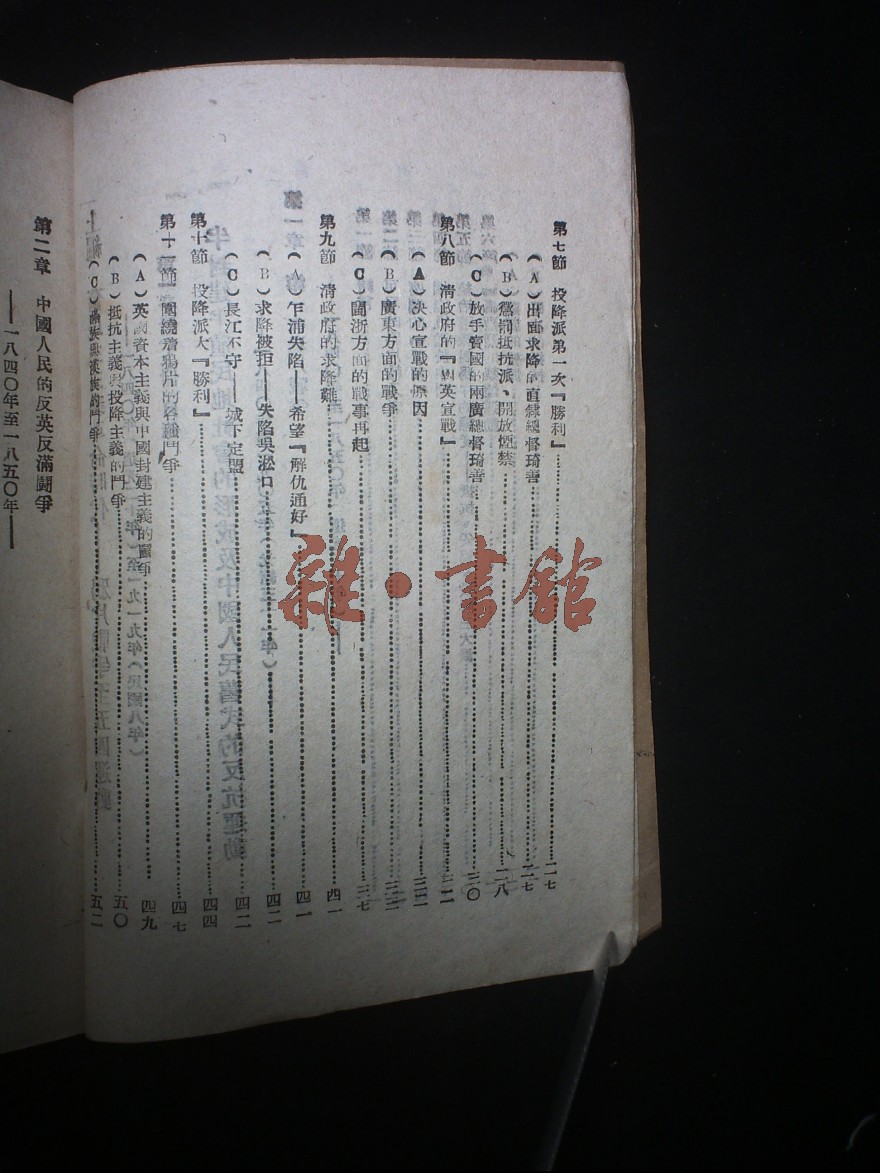 第七節 投降派第一次『勝利』……二七
(A)出面求降的直隸總督琦善……二七
(B)懲罰抵抗派，開放煙禁……二八
(C)放手賣國的兩廣總督琦善……三〇
第八節 清政府的『對英宣戰』……三二
(A)決心宣戰的原因……三二
(B)廣東方面的戰爭……三三
(C)閩浙方面的戰事再起……三七
第九節 清政府的求降難……四一
(A)乍浦失陷——希望『解仇通好』……四一
(B)求降被拒——失陷吳淞口……四二
(C)長江不守——城下定盟……四二
第十節 投降派大『勝利』……四四
第十一節 圍繞着鴉片的各種鬥爭……四七
(A)英國資本主義與中國封建主義的鬥爭……四九
(B)抵抗主義與投降主義的鬥爭……五〇
(C)滿族與漢族的鬥爭……五二
第二章 中國人民的反英反滿鬪爭
——一八四〇年至一八五〇年——
雜·書館